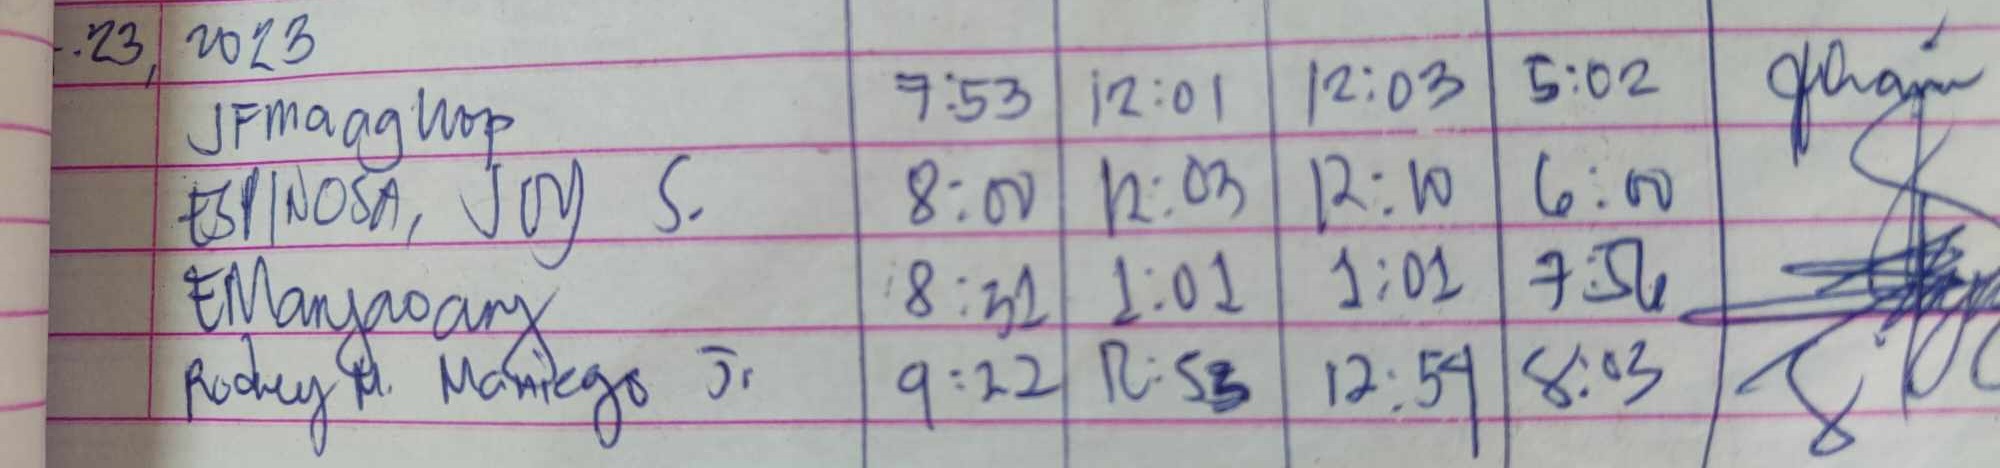 .23, 2023
JFmaaghop 7:53 12:01 12:03 5:02
ESPINOSA, JOY S. 8:00 12:03 12:10 6:00
EManjaoang 8:31 1:01 1:01 7:56
Rodney M. Maniego Jr. 9:22 12:53 12:54 8:03